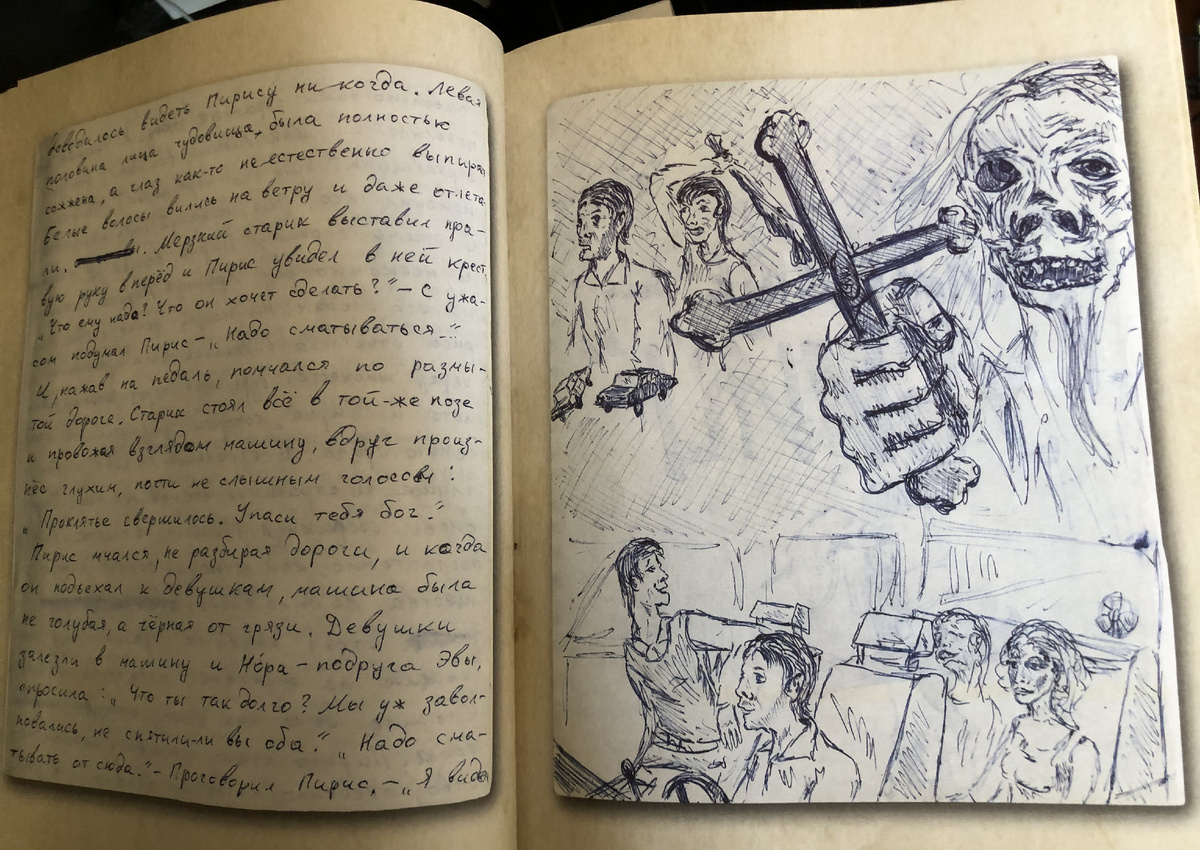 доводилось видеть Пирису ни когда. Левая
половина лица чудовища, была полностью
сожжена, а глаз как-то неестественно выпира
белые волосы вились на ветру и даже отлета-
ли. Мерзкий старик выставил пра-
вую руку вперёд и Пирис увидел в ней крест.
"Что ему нада? Что он хочет сделать?" – С ужа-
сом подумал Пирис – "Надо сматываться."
И, нажав на педаль, помчался по размы-
той дороге. Старик стоял всё в той-же позе
и провожая взглядом машину, вдруг произ-
нёс глухим, почти не слышным голосом:
"Проклятье свершилось. Упаси тебя бог."
Пирис мчался, не разбирая дороги, и когда
он подъехал к девушкам, машина была
не голубая, а чёрная от грязи. Девушки
залезли в машину и Нóра – подруга Эвы,
спросила: "Что ты так долго? Мы уж завол-
новались, не спятили-ли вы оба." "Надо сма-
тывать от сюда." – Проговорил Пирис, – "Я виде